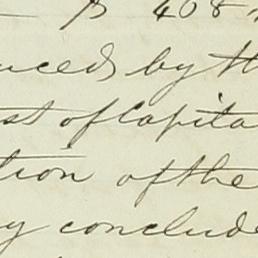 408
uced by th
st of Capita
tion of the
y conclude